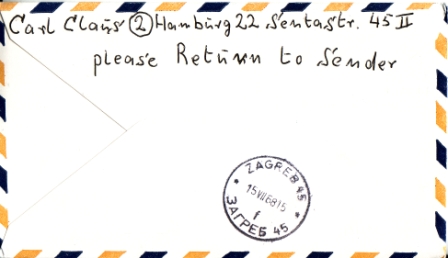 Carl Claus (2) Hamburg 22 Sentastr. 45 II
please Return to Sender
ZAGREB 45
15 VII 68 15
f
ЗАГРЕБ 45